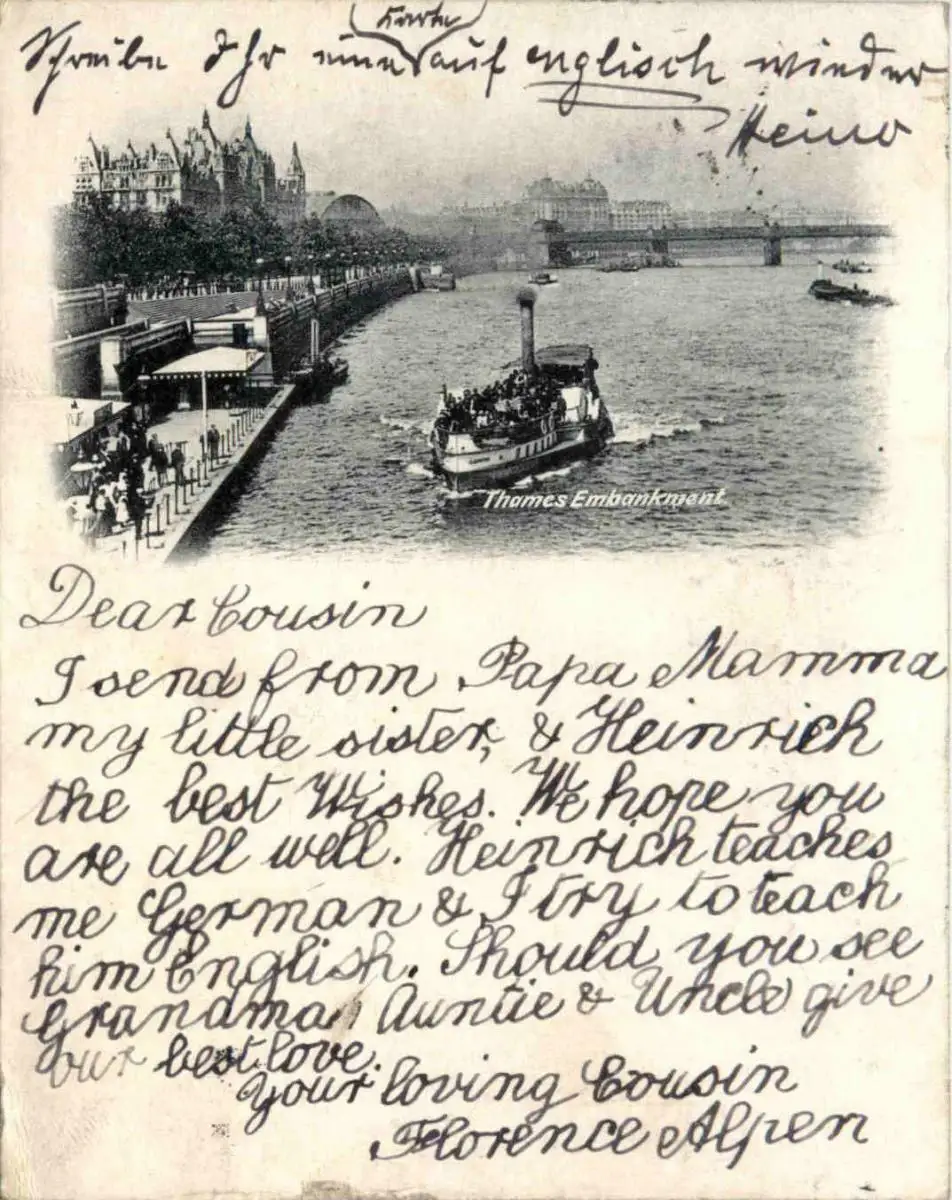 Schreibe Ihr eine Karte auf englisch wieder
Heino
Thames Embankment.
Dear Cousin
I send from Papa Mamma
my little sister, & Heinrich
the best Wishes. We hope you
are all well. Heinrich teaches
me German & I try to teach
him English. Should you see
Grandma, Auntie & Uncle give
our best love.
Your loving Cousin
Florence Alpen